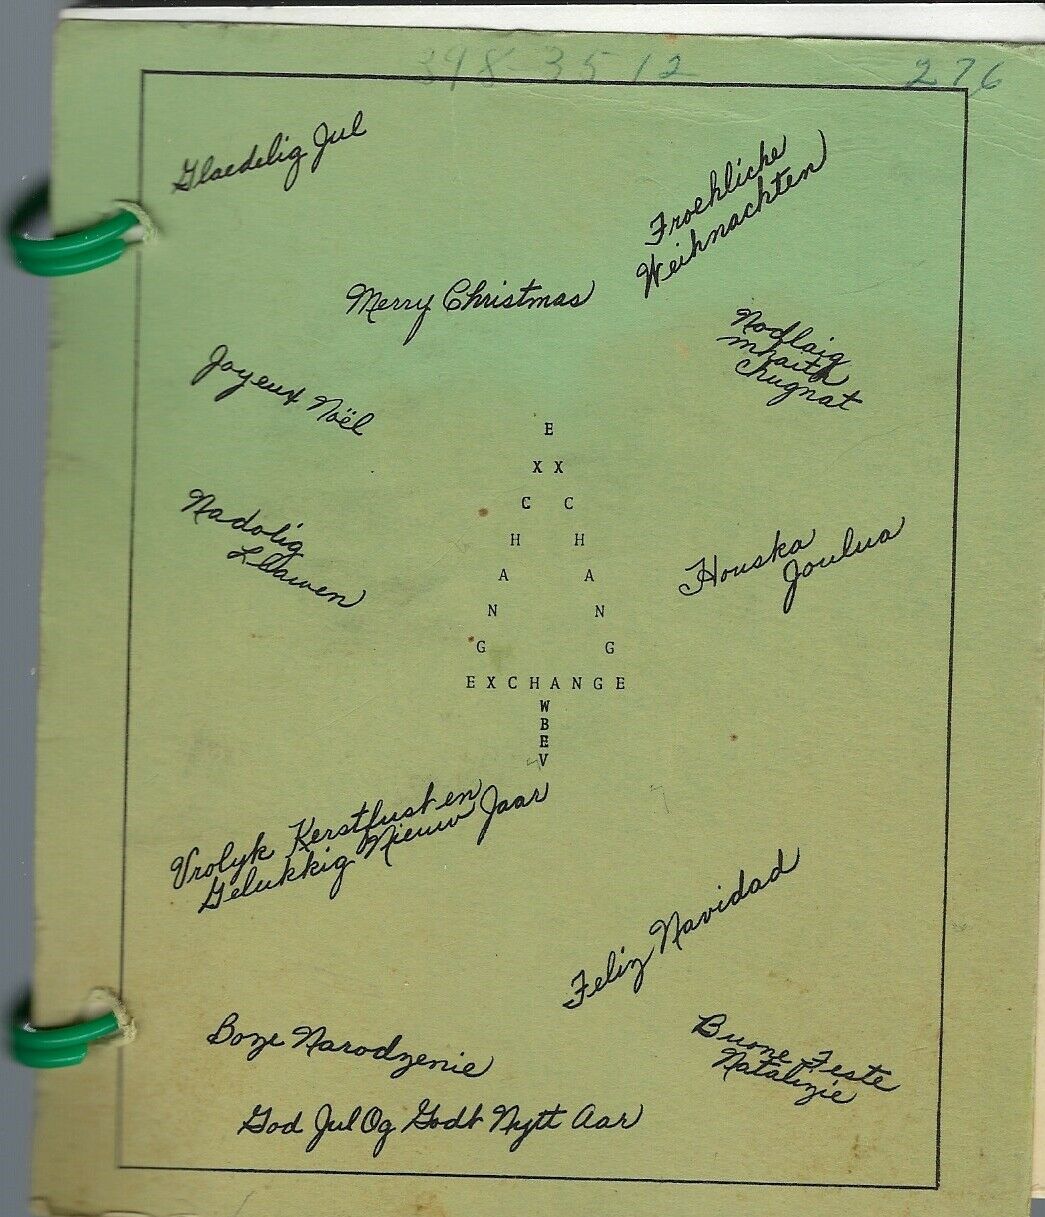 398-3512 276
Glaedelig Jul
Froehliche
Weihnachten
Merry Christmas
Nodlaig
mhaith
chugnat
Joyeux Noël
E
X X
C C
H H
A A
N N
G G
EXCHANGE
W
B
E
V
Nadolig
Llawen
Houska
Joulua
Vrolyk Kerstfust en
Gelukkig Nieuw Jaar
Feliz Navidad
Boze Narodzenie
Buone Feste
Natalizie
God Jul Og Godt Nytt Aar